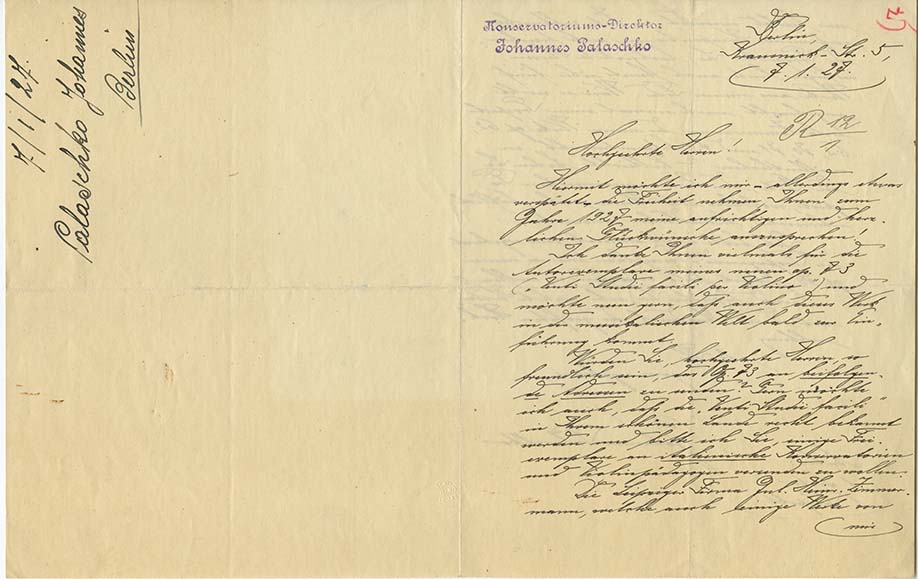 7/1/27.
Palaschko Johannes
Berlin
Konservatoriums-Direktor
Johannes Palaschko
Berlin,
Str. 5,
7. 1. 27.
R 12/1
Hochgeehrte Herren!
Hiermit möchte ich mir – allerdings etwas
verspätet – die Freiheit nehmen, Ihnen zum
Jahre 1927 meine aufrichtigen und herz-
lichen Glückwünsche auszusprechen!
Ich danke Ihnen vielmals für die
Autorexemplare meines neuen op. 73
("Venti Studii facili per Violino") und
möchte nun gern, daß auch dieses Werk
in der musikalischen Welt bald zur Ein-
führung kommt.
Würden Sie, hochgeehrte Herren, so
freundlich sein, das Op. 73 an beifolgen-
de Adressen zu senden? Gern möchte
ich auch, daß die "Venti Studii facili"
in Ihrem schönen Lande recht bekannt
werden und bitte ich Sie, einige Frei-
exemplare an italienische Konservatorien
und Violinpädagogen versenden zu wollen.
Die Leipziger Firma Jul. Heinr. Zimmer-
mann, welche auch einige Werke von
mir